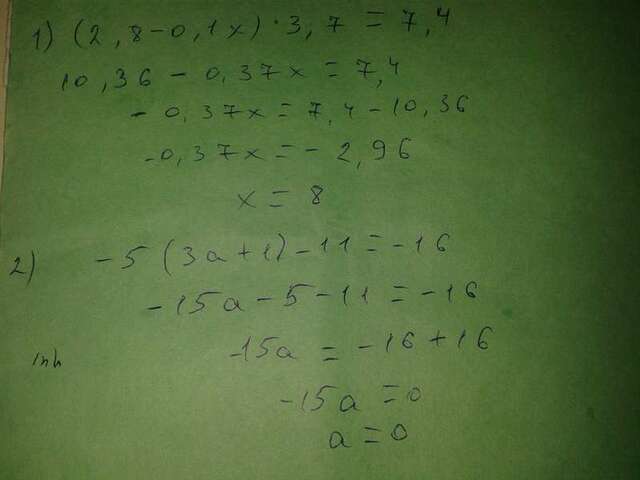 1) (2,8-0,1x)·3,7=7,4
10,36-0,37x=7,4
-0,37x=7,4-10,36
-0,37x=-2,96
x=8
2) -5(3a+1)-11=-16
-15a-5-11=-16
-15a=-16+16
-15a=0
a=0